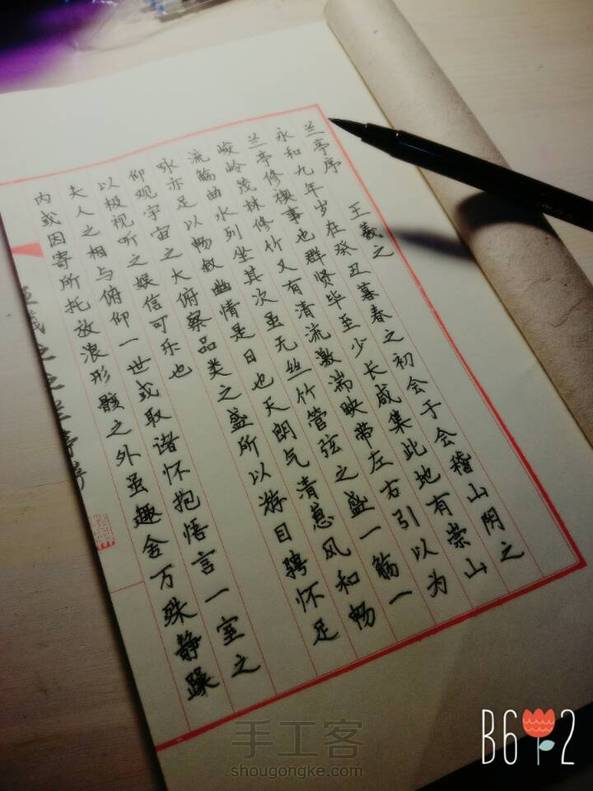 兰亭序 王羲之
永和九年岁在癸丑暮春之初会于会稽山阴之
兰亭修禊事也群贤毕至少长咸集此地有崇山
峻岭茂林修竹又有清流激湍映带左右引以为
流觞曲水列坐其次虽无丝竹管弦之盛一觞一
咏亦足以畅叙幽情是日也天朗气清惠风和畅
仰观宇宙之大俯察品类之盛所以游目骋怀足
以极视听之娱信可乐也
夫人之相与俯仰一世或取诸怀抱悟言一室之
内或因寄所托放浪形骸之外虽趣舍万殊静躁
手工客
shougongke.com
B6 2